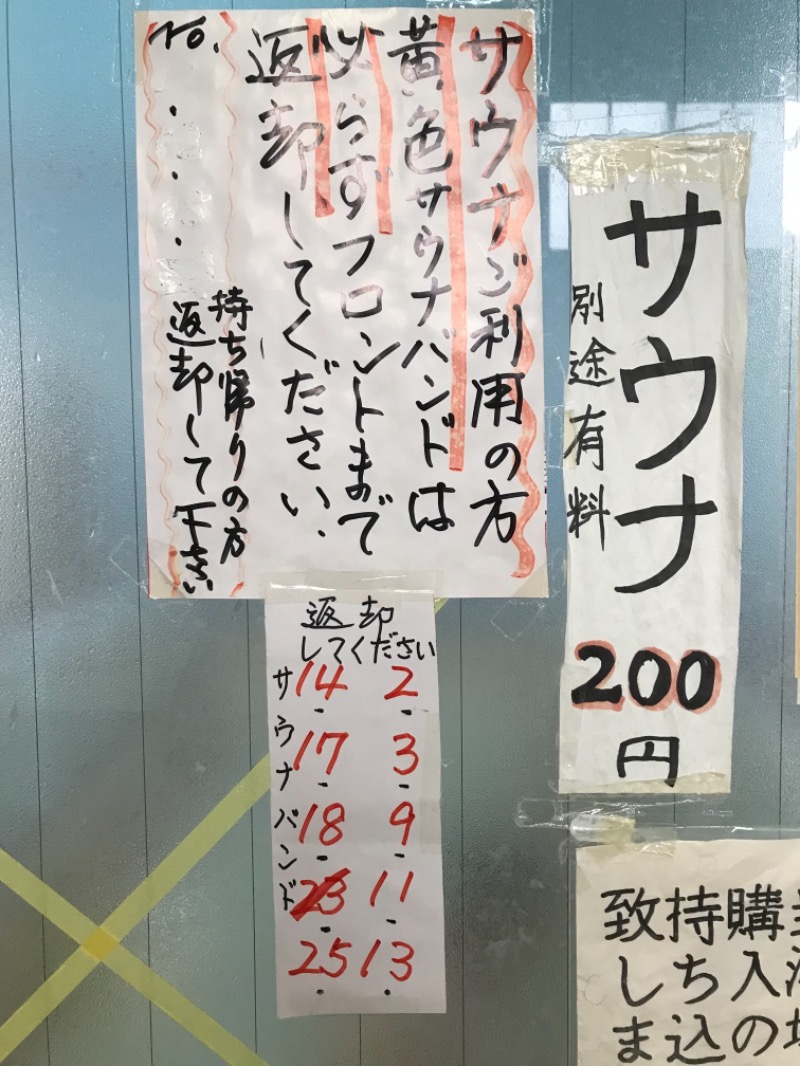 サウナご利用の方
黄色サウナバンドは
必らずフロントまで
返却してください.
No.
持ち帰りの方
返却して下さい
サウナ
別途有料
200
円
返却
してください
サウナバンド
14 2
17 3
18 9
23 11
25 13
購入の
持ち込
致しま